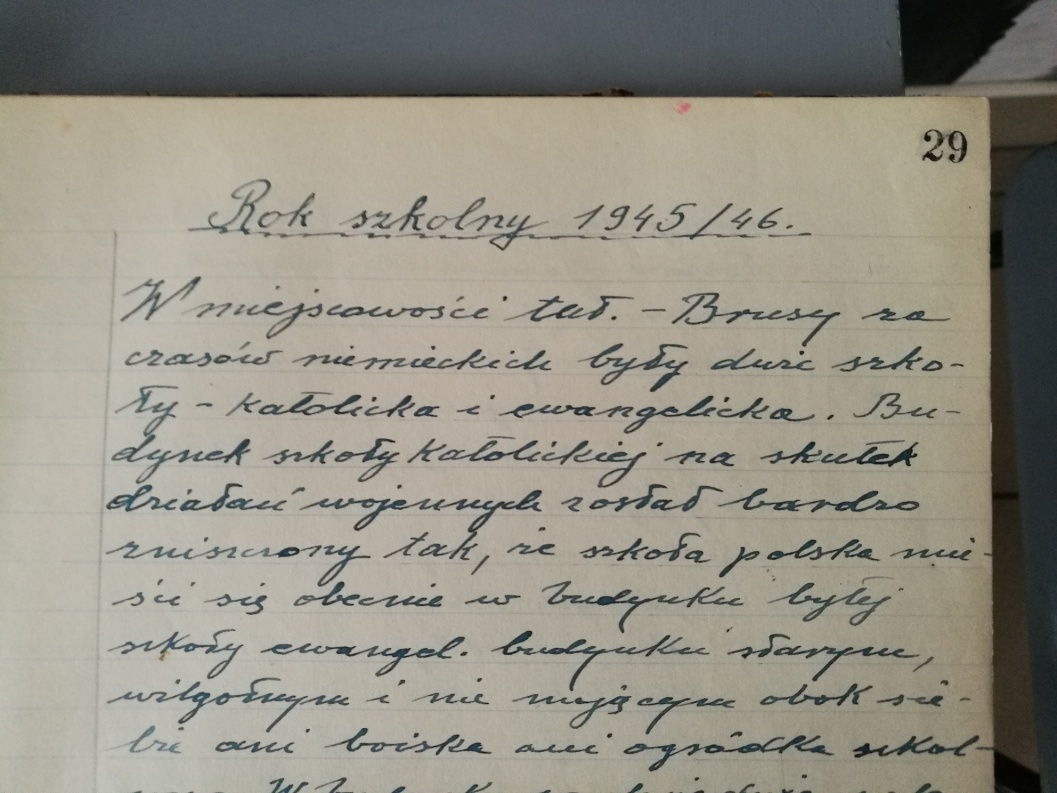 29
Rok szkolny 1945/46.
W miejscowości tut. – Brusy za
czasów niemieckich były dwie szko-
ły – katolicka i ewangelicka. Bu-
dynek szkoły katolickiej na skutek
działań wojennych został bardzo
zniszczony tak, że szkoła polska mie-
ści się obecnie w budynku byłej
szkoły ewangel. budynku starym,
wilgotnym i nie mającym obok sie-
bie ani boiska ani ogródka szkol-